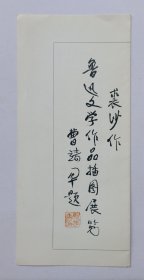 裘沙作
鲁迅文学作品插图展览
曹靖华题